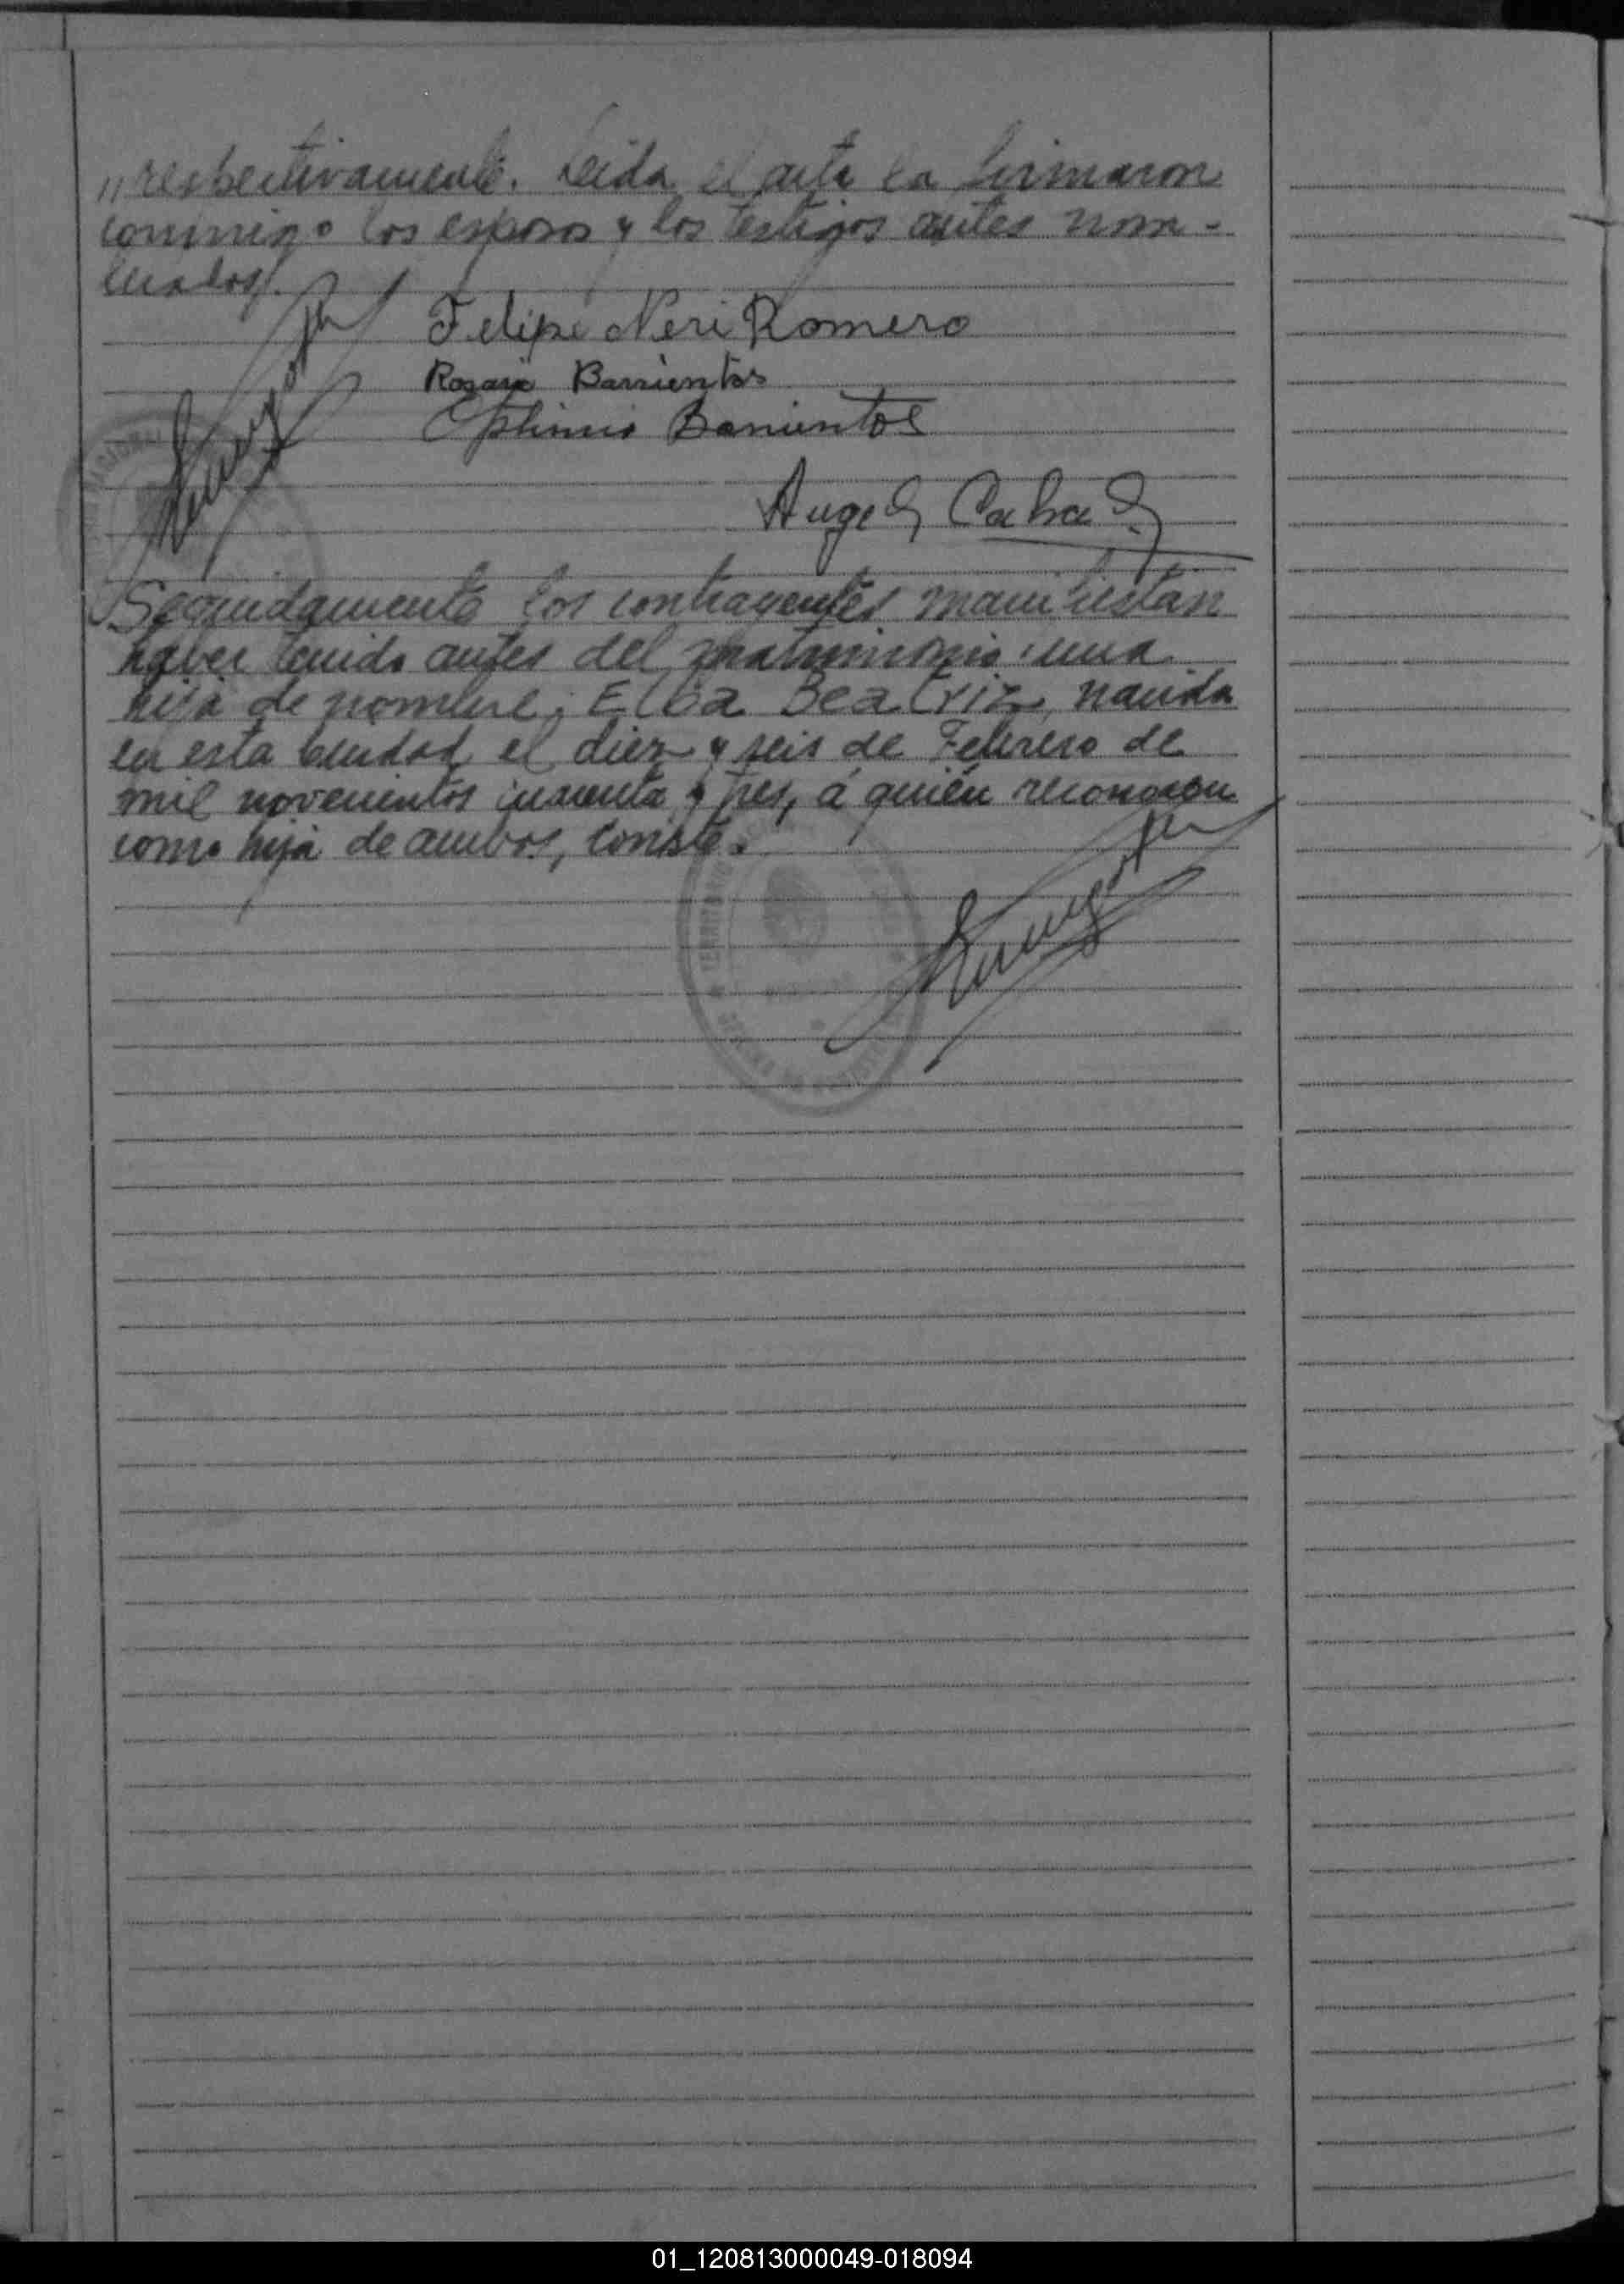 "respectivamente. Leida el acta la firmaron
conmigo los esposos y los testigos antes nom-
brados.
Felipe Neri Romero
Rosario Barrientos
Barrientos
Angel Cabral
Seguidamente los contrayentes manifiestan
haber tenido antes del matrimonio una
hija de nombre: Elba Beatriz, nacida
en esta ciudad el diez y seis de Febrero de
mil novecientos cuarenta y tres, á quién reconocen
como hija de ambos, conste.
01_120813000049-018094